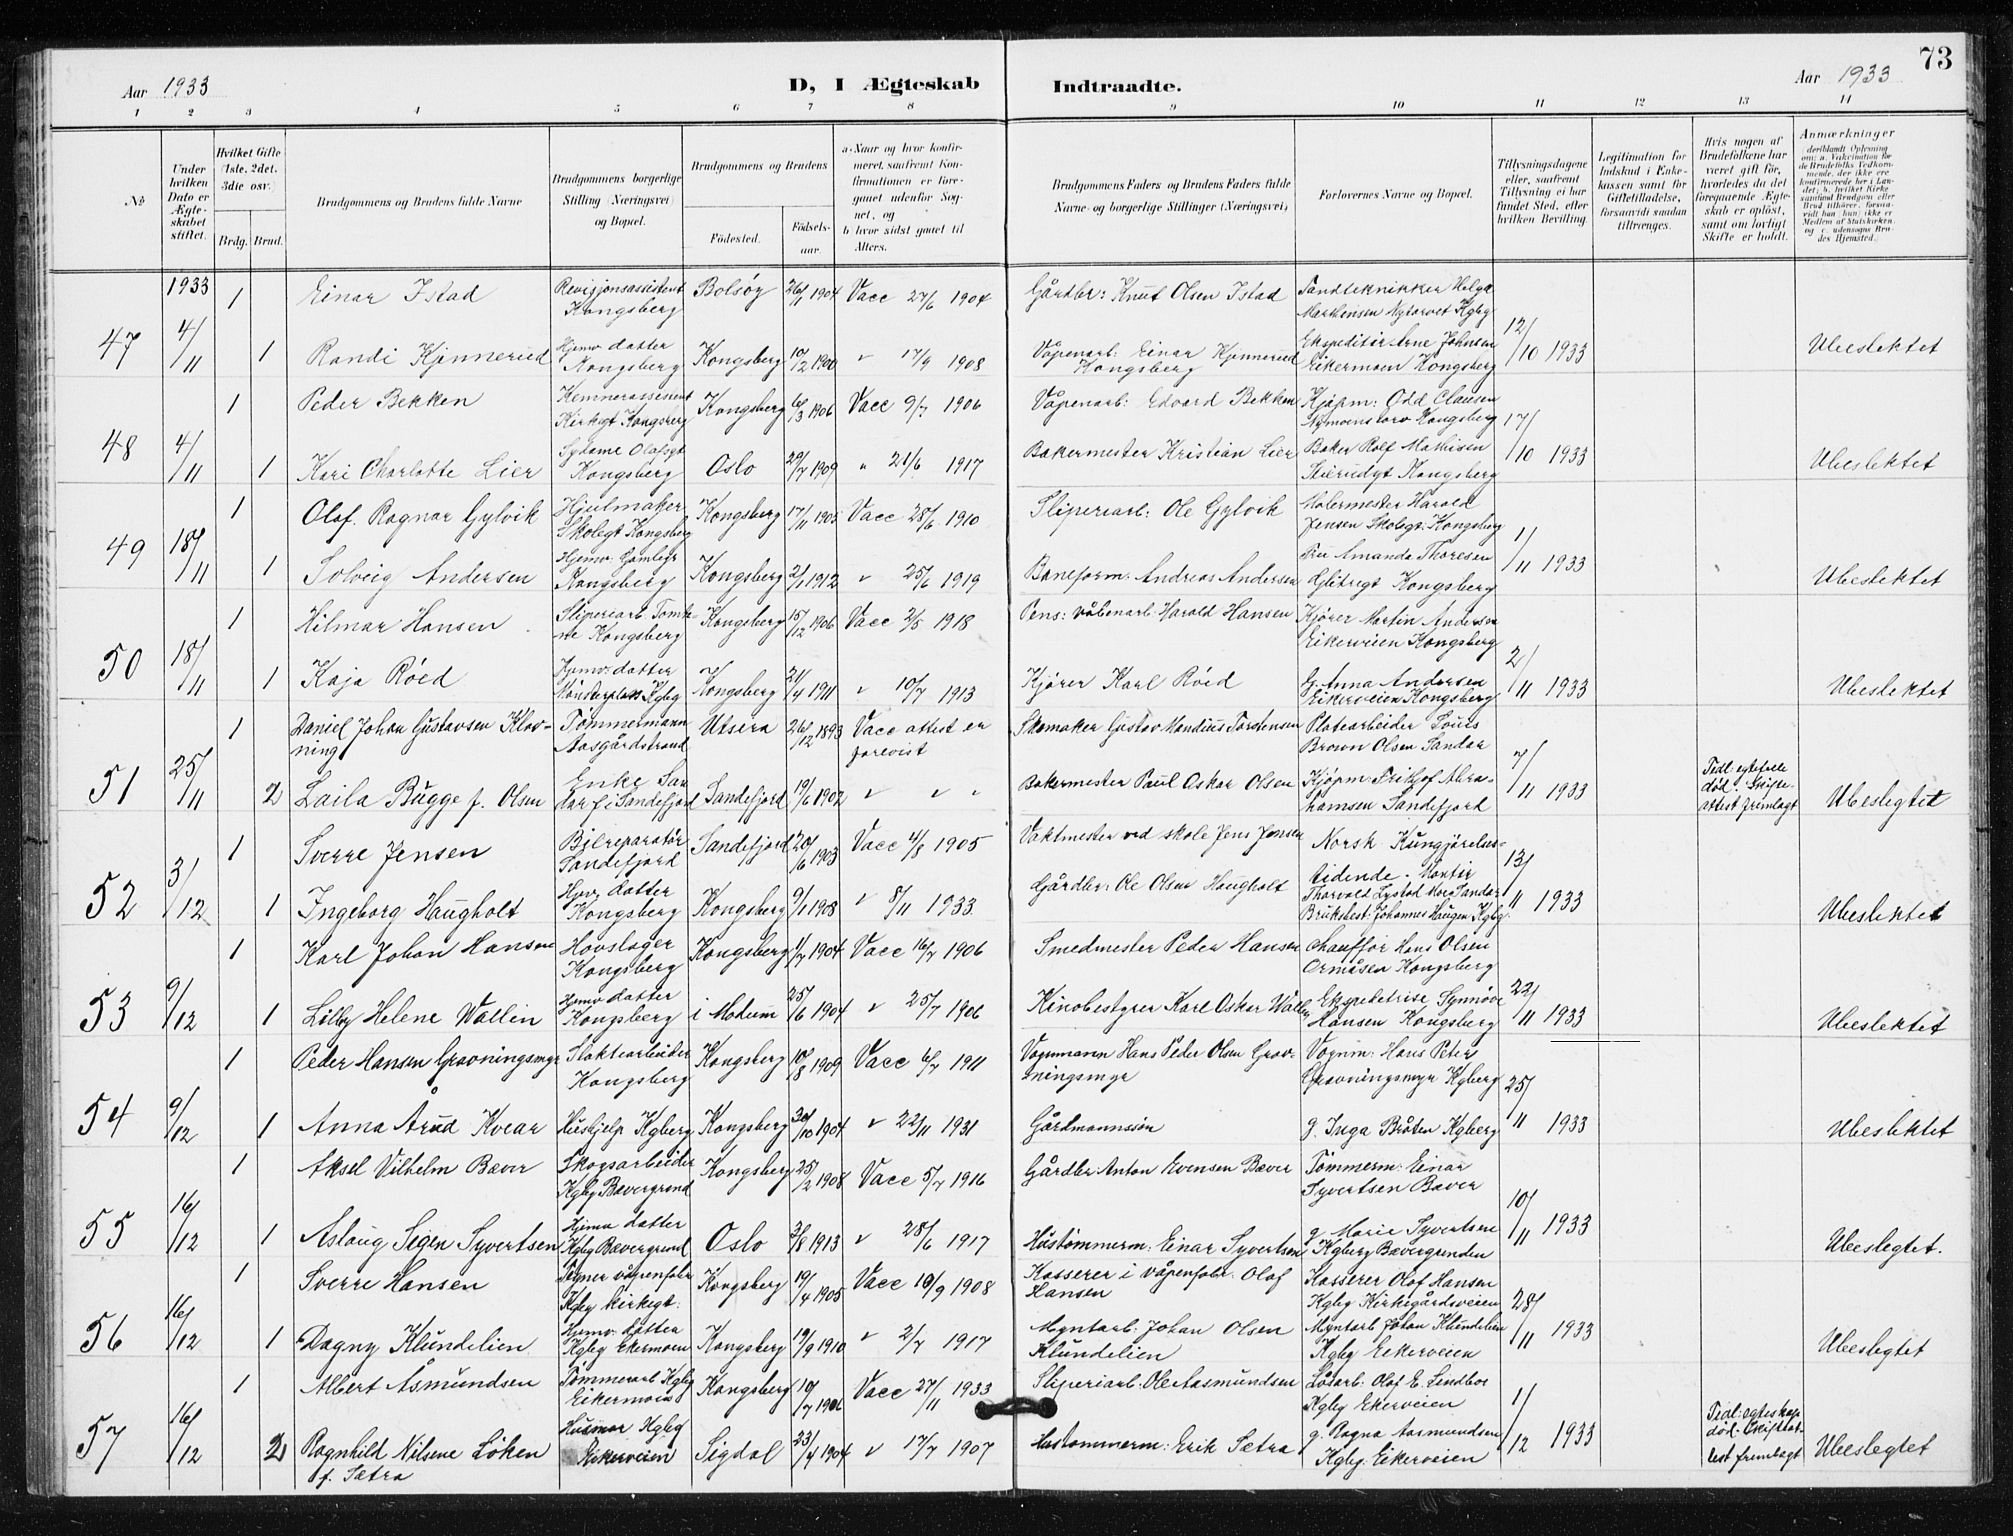 73
Aar 1933 D, I Ægteskab Indtraadte. Aar 1933
1 2 3 4 5 6 7 8 9 10 11 12 13 14
No
Under hvilken Dato er Ægteskabet stiftet.
Hvilket Gifte (1ste. 2det. 3die osv.) Brdg. Brud.
Brudgommens og Brudens fulde Navne
Brudgommens borgerlige Stilling (Næringsvei) og Bopæl.
Brudgommens og Brudens Fødested. Fødselsaar.
a. Naar og hvor konfirmeret, saafremt Konfirmationen er foregaaet udenfor Sognet, og b hvor sidst gaaet til Alters.
Brudgommens Faders og Brudens Faders fulde Navne og borgerlige Stillinger (Næringsvei)
Forlovernes Navne og Bopæl.
Tillysningsdagene eller, saafremt Tillysning ei har fundet Sted, efter hvilken Bevilling.
Legitimation for Indskud i Enkekassen samt for Giftetilladelse, forsaavidt saadan tiltrænges.
Hvis nogen af Brudefolkene har været gift før, hvorledes da det foregaaende Ægteskab er opløst, samt om lovligt Skifte er holdt.
Anmærkninger deriblandt Oplysning om: a. Vakcination for de Brudefolks Vedkommende, der ikke ere konfirmerede her i Landet; b. hvilket Kirkesamfund Brudgom eller Brud tilhører, forsaavidt han (hun) ikke er Medlem af Statskirken. og c. udensogns Brudes Hjemsted.
1933 1 Einar Istad Revisjonsassistent Kongsberg Bolsøy 26/1 1904 Vacc 27/6 1904 Gårdbr: Knut Olsen Istad Tandteknikker Helge Marthensen Nytorvet Kgbg
47 4/11 1 Randi Kjennerud Hjemv datter Kongsberg Kongsberg 10/2 1900 " 17/9 1908 Våpenarb: Einar Kjennerud Kongsberg Ekspeditør Arne Johnsen Eikermoen Kongsberg 12/10 1933 Ubeslektet
1 Peder Bekken Kemnerassistent Kirkegt Kongsberg Kongsberg 6/3 1906 Vacc 9/7 1906 Våpenarb: Edvard Bekken Kjøpm: Odd Clausen Nymoenstorv Kongsberg
48 4/11 1 Kari Charlotte Lier Sydame Olafsgt Kongsberg Oslo 29/7 1909 " 21/6 1917 Bakermester Kristian Lier Baker Rolf Mathisen Kongsberg 17/10 1933 Ubeslektet
1 Olaf Ragnar Gylvik Hjulmaker Skolegt Kongsberg Kongsberg 17/11 1905 Vacc 28/6 1910 Sliperiarb: Ole Gylvik Malermester Harald Jensen Skolegt: Kongsberg
49 18/11 1 Solveig Andersen Hjemv Gamlegr Kongsberg Kongsberg 21/1 1912 " 25/6 1919 Baneform: Andreas Andersen Fru Amanda Thoresen Glitregt Kongsberg 1/11 1933 Ubeslektet
1 Hilmar Hansen Sliperiarb Kongsberg Kongsberg 15/12 1906 Vacc 2/5 1918 Pens: våbenarb: Harald Hansen Kjører Martin Andersen Eikerveien Kongsberg
50 18/11 1 Kaja Røed Hjemv: datter Kgbg Kongsberg 21/4 1911 " 10/7 1913 Kjører Karl Røed G. Anna Andersen Eikerveien Kongsberg 2/11 1933 Ubeslektet
1 Daniel Johan Gustavsen Klovning Tømmermann Aasgårdstrand Utsira 26/12 1893 Vacc attest er forevist Skomaker Gustav Mandius Torstensen Platearbeider Louis Brown Olsen Sandar
51 25/11 2 Laila Bugge f. Olsen Enke Sandar f i Sandefjord Sandefjord 19/6 1902 " " " Bakermester Paul Oskar Olsen Kjøpm: Frithjof Abrahamsen Sandefjord 7/11 1933 Tidl: egtefelle død. Skifteattest fremlagt Ubeslegtet
1 Sverre Jensen Bilreparatør Sandefjord Sandefjord 20/6 1903 Vacc 4/8 1905 Vaktmester ved skole Jens Jensen Norsk Kungjørelsestidende. Montør Thorvald Lystad Sandar
52 3/12 1 Ingeborg Haugholt Hjv datter Kongsberg Kongsberg 9/1 1908 " 8/11 1933 Gårdbr: Ole Olsen Haugholt Bruksbest: Johannes Haugen Kgbg 13/11 1933 Ubeslektet
1 Karl Johan Hansen Hovslager Kongsberg Kongsberg 11/7 1904 Vacc 16/7 1906 Smedmester Peder Hansen Chauffør Hans Olsen Ormåsen Kongsberg
53 9/12 1 Lølby Helene Wallin Hjemv datter Kongsberg i Modum 25/6 1904 " 25/7 1906 Kinobestyrer Karl Oskar Wallin Ekspeditrise Synnøve Hansen Kongsberg 22/11 1933 Ubeslektet
1 Peder Hansen Gravningsmyr Slaktearbeider Kongsberg Kongsberg 10/8 1909 Vacc 6/7 1911 Vognmann Hans Peder Olsen Gravningsmyr Vognm: Hans Peter Gravningsmyr Kgberg
54 9/12 1 Anna Årud Kvear Hushjelp Kgberg Kongsberg 30/10 1904 " 22/11 1931 Gårdmannssøn g. Inga Bråten Kgberg 25/11 1933 Ubeslektet
1 Aksel Vilhelm Bæver Skogsarbeider Kgbg Bævergrend Kongsberg 25/2 1908 Vacc 5/7 1916 Gårdbr Anton Evensen Bæver Tømmerm: Einar Syvertsen Bæver
55 16/12 1 Aslaug Signe Syvertsen Hjemv datter Kgbg Bævergrend Oslo 3/8 1913 " 28/6 1917 Hustømmerm: Einar Syvertsen g. Marie Syvertsen Kgberg Bævergrenden 10/11 1933 Ubeslegtet.
1 Sverre Hansen våpenfabr Kgbg Kirkegt: Kongsberg 19/4 1905 Vacc 10/9 1908 Kasserer i våpenfabr: Olaf Hansen Kasserer Olaf Hansen Kgbg Kirkegårdsveien
56 16/12 1 Dagny Klundelien Hjemv: datter Kgbg Ekermoen Kongsberg 19/9 1910 " 2/7 1917 Myntarb: Johan Olsen Klundelien Myntarb Johan Klundelien Kgbg Eikerveien 28/11 1933 Ubeslegtet
1 Albert Åsmundsen Tømmerarb Kgbg Eikermoen Kongsberg 10/7 1906 Vacc 27/11 1933 Sliperiarb: Ole Aasmundsen Løsarb: Olaf E. Lindboe Kgbg Eikerveien
57 16/12 2 Ragnhild Nilsene Løken f. Sætra Husmor Kgbg Eikerveien Sigdal 23/4 1904 " 17/7 1907 Hustømmerm: Erik Sætra g. Ragna Aasmundsen Kgbg: Eikerveien 1/12 1933 Tidl: egteskap død. Skifteattest fremlagt Ubeslegtet